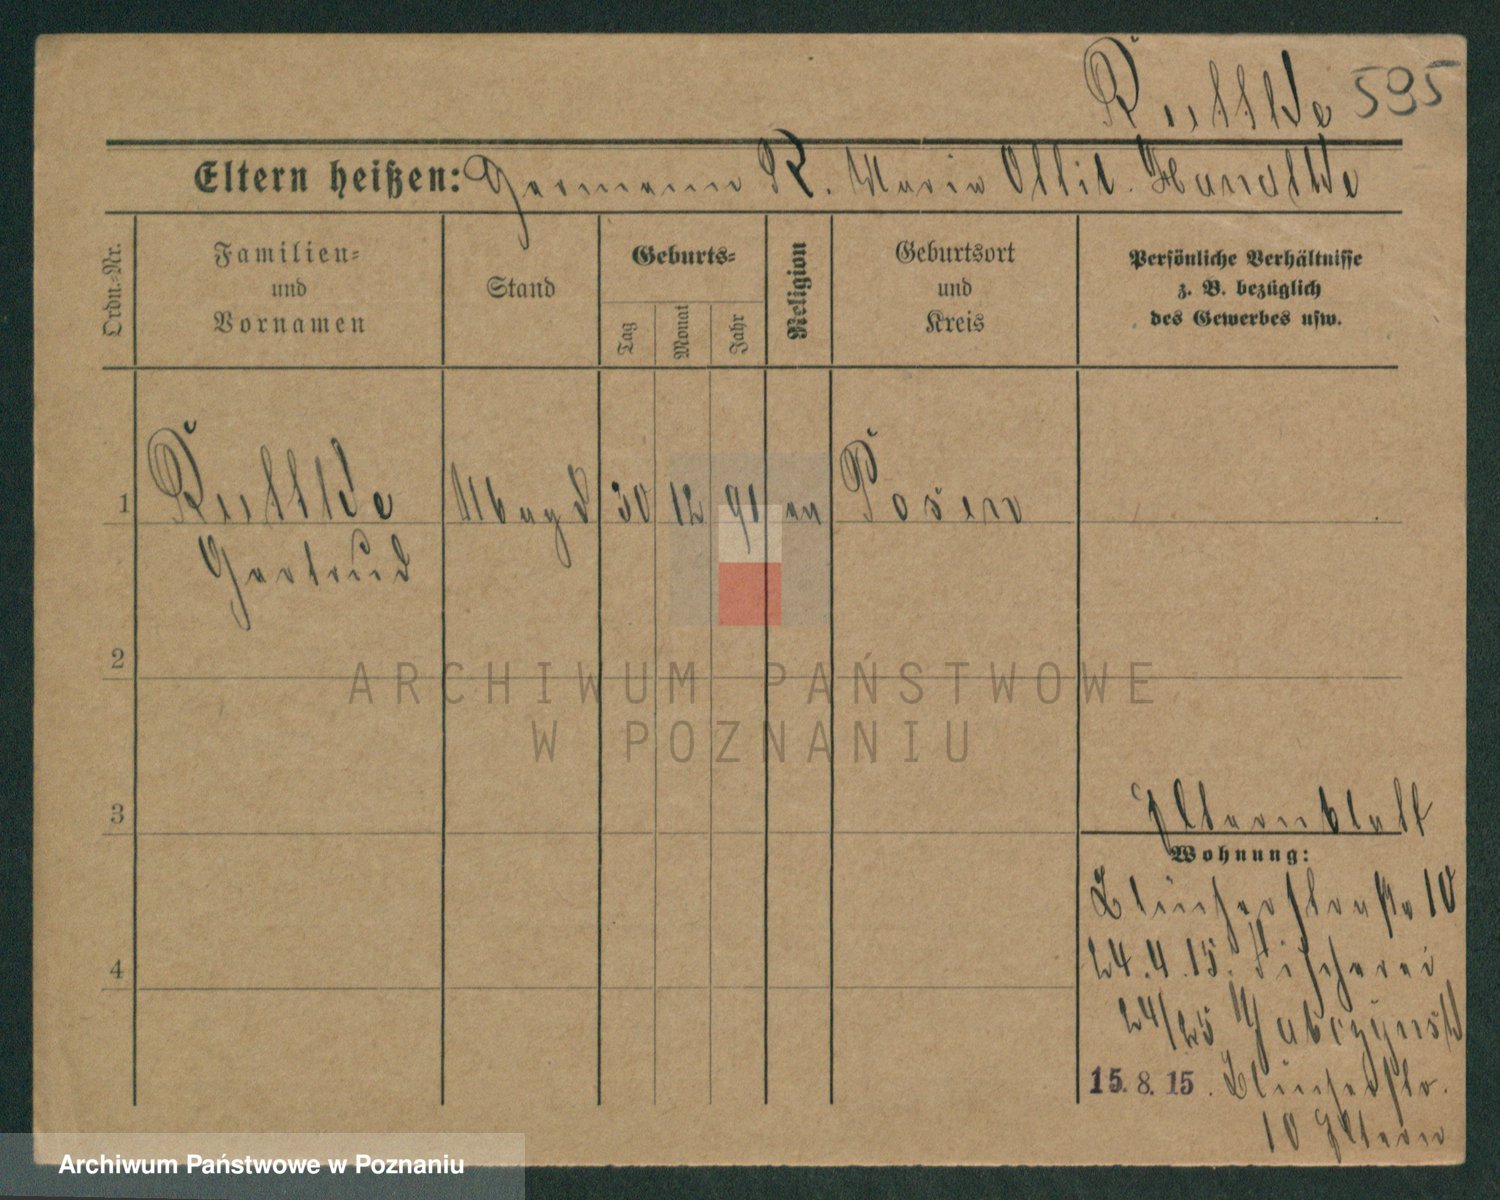 595
Eltern heißen: Hermann R. Maria Ottil.
Ordn.-Nr.
Familien-
und
Vornamen
Stand
Geburts-
Tag
Monat
Jahr
Religion
Geburtsort
und
Kreis
Persönliche Verhältnisse
z. B. bezüglich
des Gewerbes usw.
1
Magd 30 12 91 ev Posen
Gertrud
2
ARCHIWUM PAŃSTWOWE
W POZNANIU
3
Elternblatt
Wohnung:
Blücherstraße 10
24.4.15. Fischerei
4
24/25
15. 8. 15. Blücherstr.
10 Eltern
Archiwum Państwowe w Poznaniu